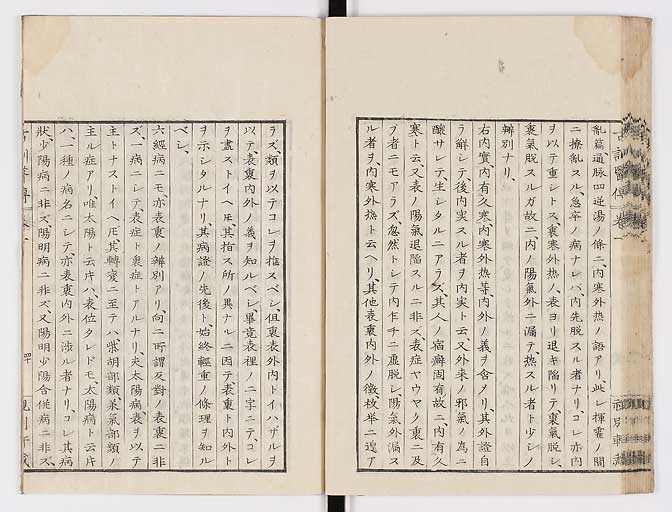 亂篇通脉四逆湯ノ條ニ、内寒外熱ノ語アリ、此レ揮霍ノ間
ニ撩亂スル、急卒ノ病ナレバ、内先脱スル者ナリ、コレ亦内
ヲ以テ重シトス、裏寒外熱ハ、表ヨリ退キ陥リテ、裏氣脱シ、
裏氣脱スルガ故ニ、内ノ陽氣外ニ漏テ、熱スル者ト少シノ
辨別アリ、
右内實、内有久寒、内寒外熱等、内外ノ義ヲ含ノリ、其外證自
ラ解シテ、後内実スル者ヲ内実ト云、又外来ノ邪氣ノ為ニ
釀サレテ、生シタルニアラズ、其人ノ宿癖固有故ニ、内有久
寒ト云、又表ノ陽氣退陥スルニ非ズ、表症ヤウヤク裏ニ及
ブ者ニモアラズ、忽然トシテ内乍チニ虚脱シ、陽氣外漏ス
ル者ヲ、内寒外熱ト云ヘリ、其他表裏内外ノ徴、枚挙ニ遑ア
ラズ、類ヲ以テコレヲ推スベシ、但裏表外内トイハザルヲ
以テ、表裏内外ノ義ヲ知ルベシ、畢竟表裡ノ二字ニテ、コレ
ヲ盡ストイヘ𪜈、其指ス所ノ異ナルニ因テ、表裏ト内外ト
ヲ示シタルナリ、其病證ノ先後ト、始終輕重ノ條理ヲ知ル
ベシ、
六經病ニモ、亦表裏ノ辨別アリ、向ニ所謂反對ノ表裏ニ非
ズ、一病ニシテ、表症ト裏症トアルナリ、夫太陽病、表ヲ以テ
主トナストイヘ𪜈、其轉変ニ至テハ、柴胡部類、承氣部類ノ
主ル症アリ、唯太陽ト云片ハ、表位タレドモ、太陽病ト云片
ハ、一種ノ病名ニシテ、亦表裏内外ニ渉ル者ナリ、コレ其病
狀少陽病ニ非ズ、陽明病ニ非ズ、又陽明少陽合併病ニ非ズ、